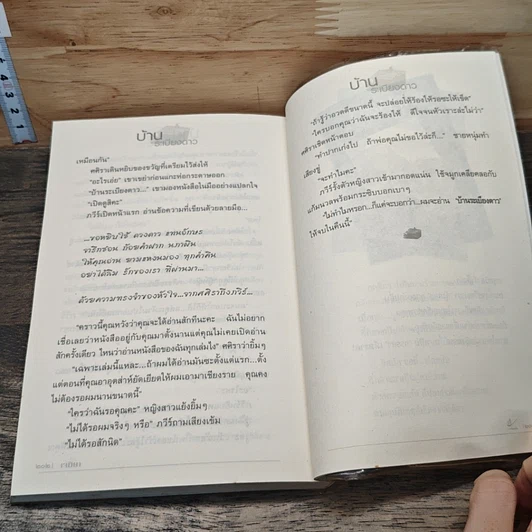 บ้าน
ระเบียงดาว
เหมือนกัน"
ศศิราเดินหยิบของขวัญที่เตรียมไว้ส่งให้
"อะไรเอ่ย" เขาเขย่าก่อนแกะห่อกระดาษออก
"บ้านระเบียงดาว..." เขามองหนังสือในมืออย่างแปลกใจ
"เปิดดูสิคะ"
ภวีร์เปิดหน้าแรก อ่านข้อความที่เขียนด้วยลายมือ...
...ขอหยิบใช้ ดวงดาว แทนอักษร
จารึกซ่อน ถ้อยคำฝาก นภาฝัน
ให้คุณอ่าน ยามแหงนมอง ทุกค่ำคืน
อย่าได้ลืม รักของเรา ที่ผ่านมา...
ด้วยความทรงจำของหัวใจ...จากศศิราถึงภวีร์...
"คราวนี้คุณหวังว่าคุณจะได้อ่านสักทีนะคะ ฉันไม่อยาก
เชื่อเลยว่าหนังสืออยู่กับคุณมาตั้งนานแต่คุณไม่เคยเปิดอ่าน
สักครั้งเดียว ไหนว่าอ่านหนังสือของฉันทุกเล่มไง" ศศิราว่ายิ้มๆ
"เฉพาะเล่มนี้แหละ...ถ้าผมได้อ่านมันซะตั้งแต่แรก...ตั้ง
แต่ตอนที่คุณอาอุตส่าห์ยัดเยียดให้ผมเอามาเชียงราย คุณคง
ไม่ต้องรอผมนานขนาดนี้"
"ใครว่าฉันรอคุณคะ" หญิงสาวแย้งยิ้มๆ
"ไม่ได้รอผมจริงๆ หรือ" ภวีร์ถามเสียงเข้ม
"ไม่ได้รอสักนิด"
บ้าน
ระเบียงดาว
"ถ้ารู้ว่าอวดดีขนาดนี้ จะปล่อยให้ร้องไห้รอซะให้เข็ด"
"ใครบอกคุณว่าฉันจะร้องไห้ ดีใจจนหัวเราะล่ะไม่ว่า"
ศศิราเชิดหน้าตอบ
"ทำปากเก่งไป ถ้าพ่อคุณไม่ขอไว้ล่ะก็..." ชายหนุ่มทำ
เสียงขู่
"จะทำไมคะ"
ภวีร์รั้งตัวหญิงสาวเข้ามากอดแน่น ใช้จมูกเคลียคลอกับ
แก้มนวลพร้อมกระซิบบอกเบาๆ
"ไม่ทำไมหรอก...ก็แค่จะบอกว่า...ผมจะอ่าน 'บ้านระเบียงดาว'
ให้จบในคืนนี้"